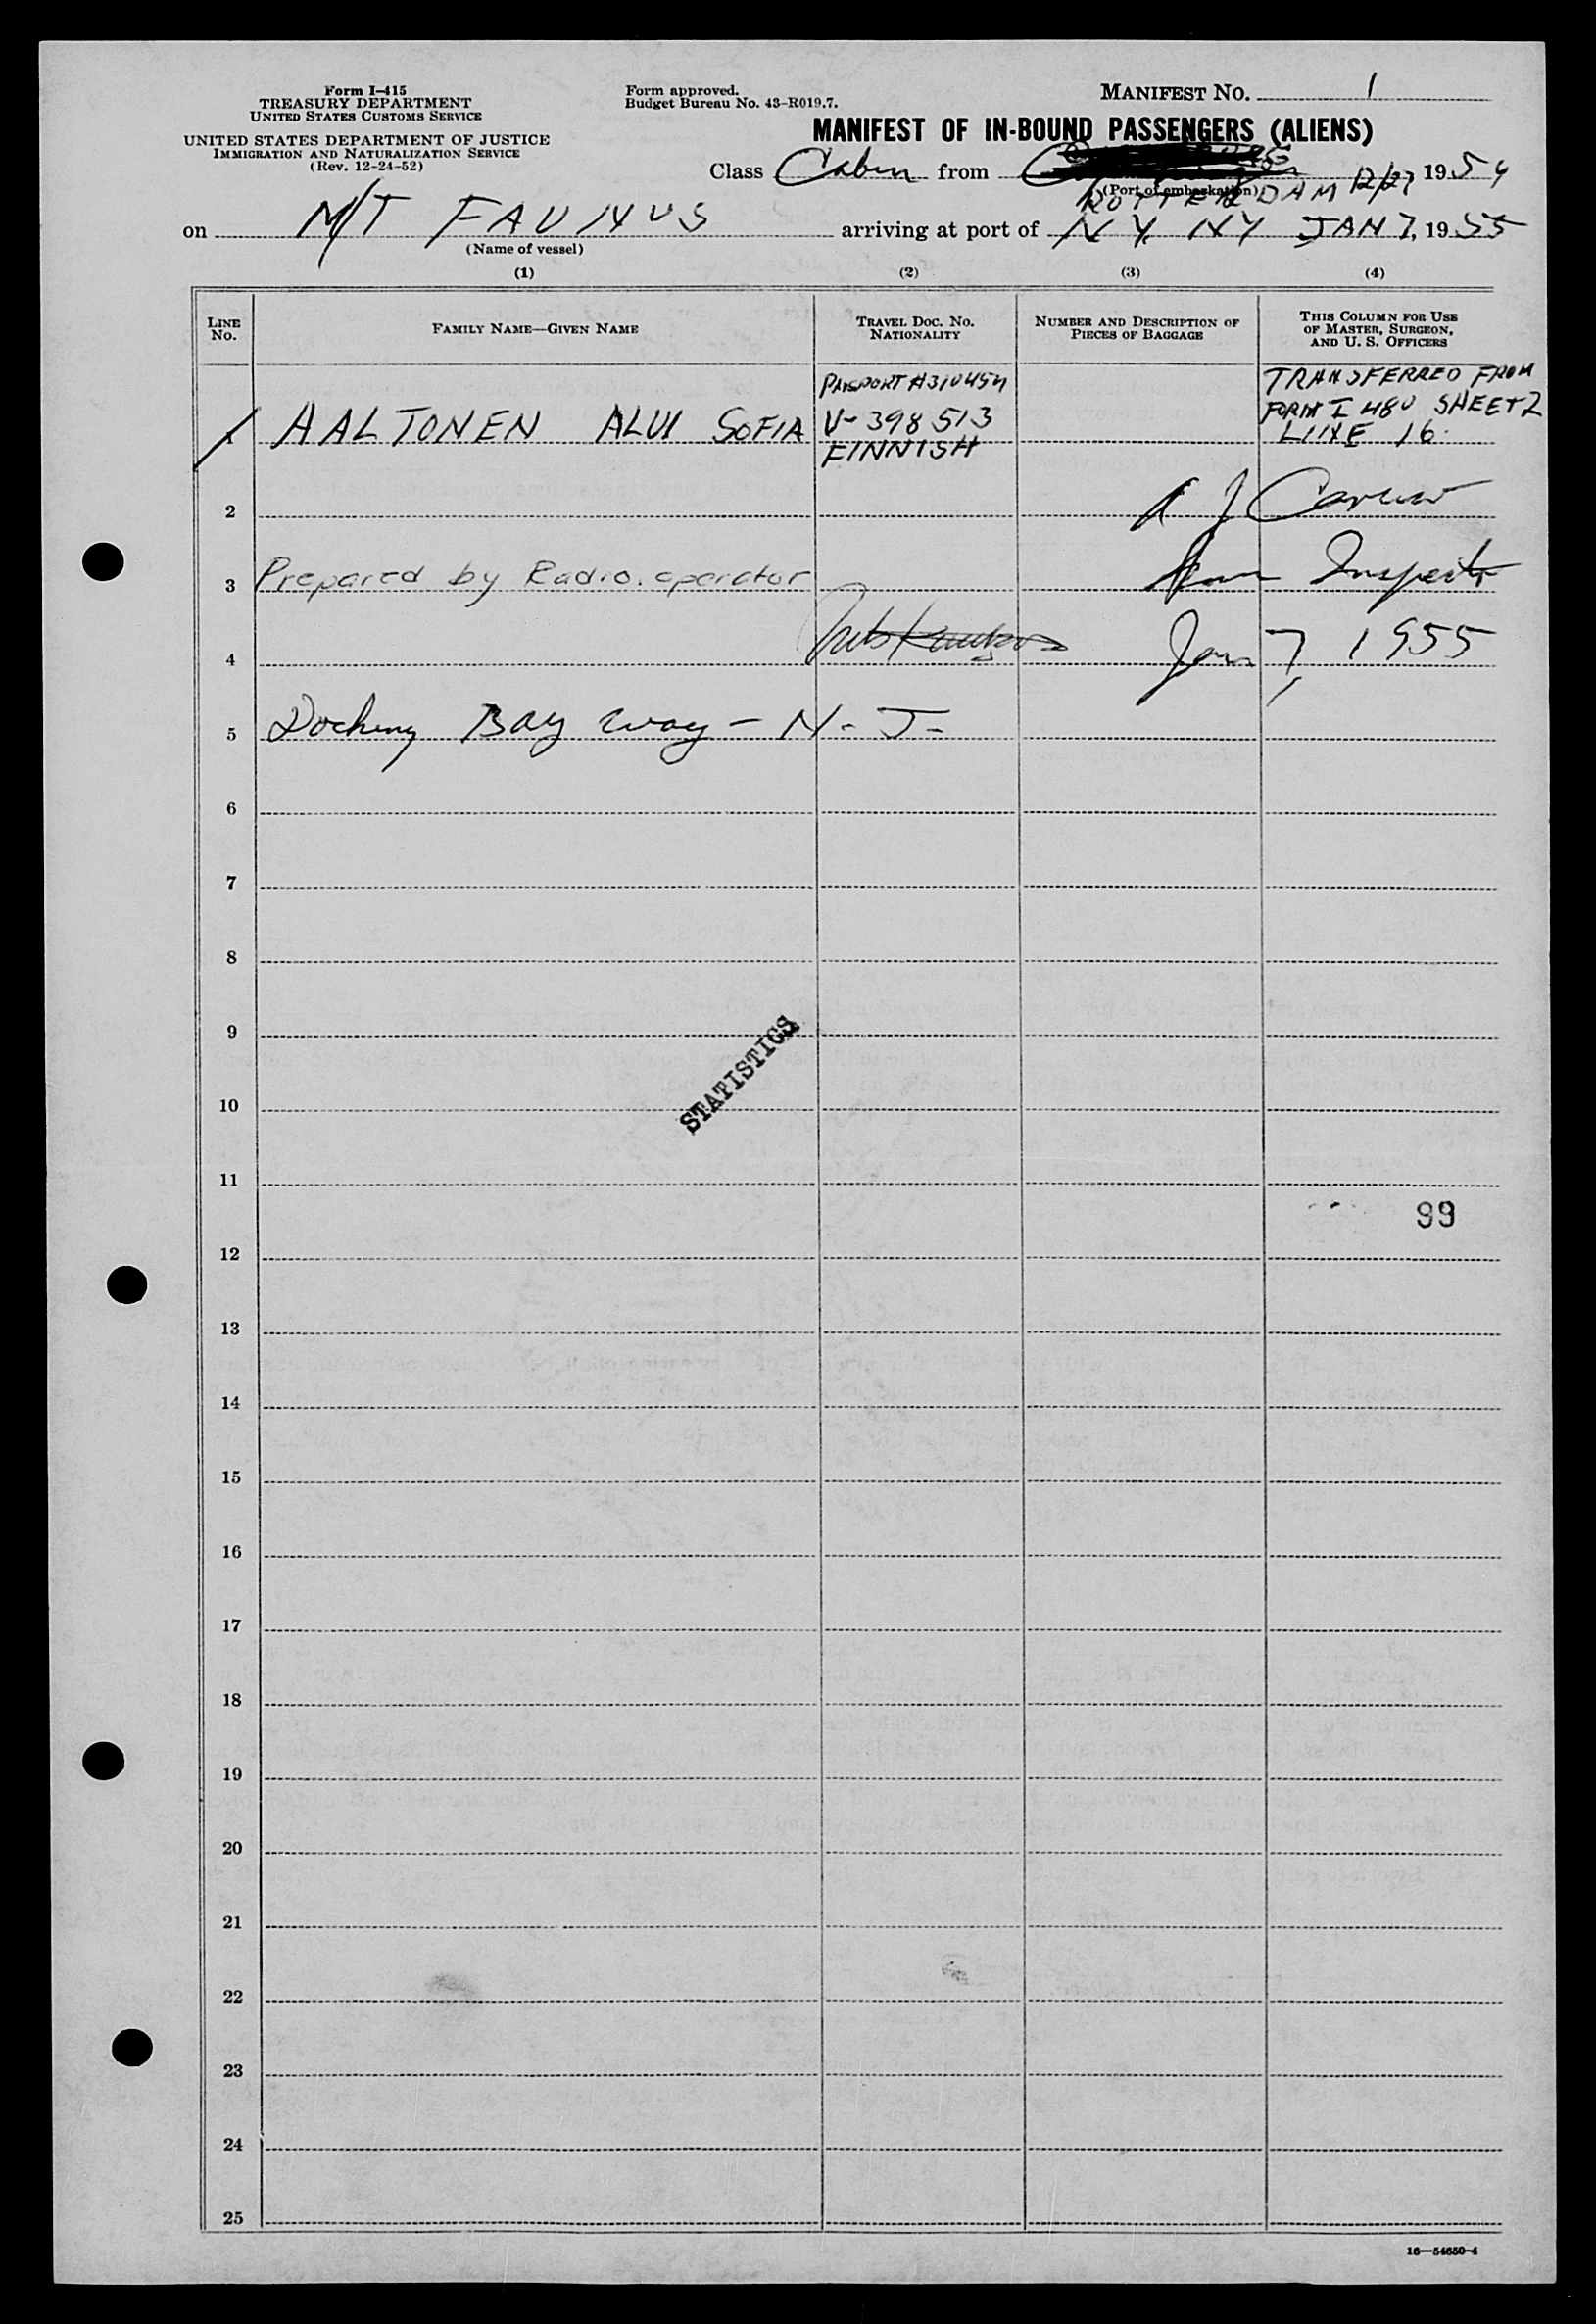 Form I-415
TREASURY DEPARTMENT
UNITED STATES CUSTOMS SERVICE
UNITED STATES DEPARTMENT OF JUSTICE
IMMIGRATION AND NATURALIZATION SERVICE
(Rev. 12-24-52)
Form approved.
Budget Bureau No. 43-R019.7.
MANIFEST NO. 1
MANIFEST OF IN-BOUND PASSENGERS (ALIENS)
Class Cabin from 12/27 1954
(Port of embarkation)
ROTTERDAM
on M/T FAUNUS arriving at port of N Y. NY JAN 7, 1955
(Name of vessel)
(1) (2) (3) (4)
LINE No. FAMILY NAME—GIVEN NAME TRAVEL DOC. NO. NATIONALITY NUMBER AND DESCRIPTION OF PIECES OF BAGGAGE THIS COLUMN FOR USE OF MASTER, SURGEON, AND U. S. OFFICERS
PASSPORT #310454 TRANSFERRED FROM
1 AALTONEN ALVI SOFIA V-398513 FORM I 480 SHEET 2
FINNISH LINE 16.
2
3 Prepared by Radio. operator Inspector
4 Jan 7, 1955
5 Docking Bay way - N. J-
6
7
8
9
STATISTICS
10
11
99
12
13
14
15
16
17
18
19
20
21
22
23
24
25
16—54650-4